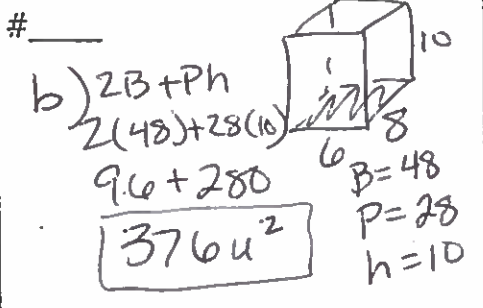 #____
b) 2B+Ph
2(48)+28(10)
96+280
376u²
10
8
6
B=48
P=28
h=10